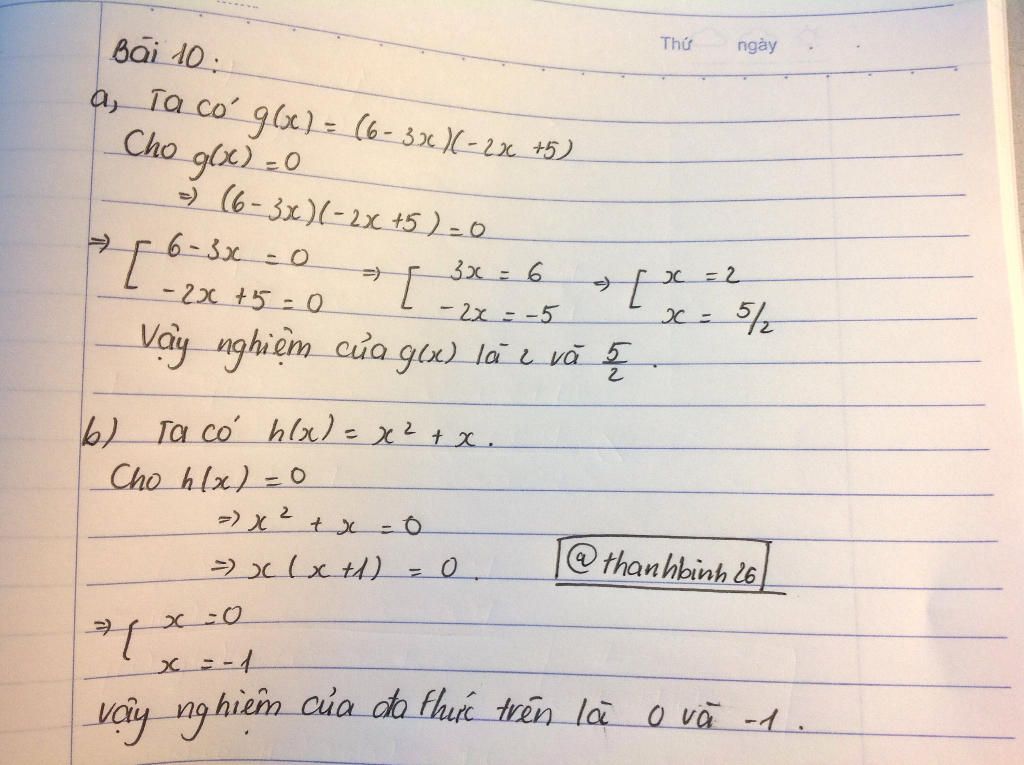 Thứ ngày
Bài 10:
a, Ta có g(x) = (6 - 3x)(-2x + 5)
Cho g(x) = 0
⇒ (6 - 3x)(-2x + 5) = 0
⇒ [ 6 - 3x = 0 ⇒ [ 3x = 6 ⇒ [ x = 2
-2x + 5 = 0 -2x = -5 x = 5/2
Vậy nghiệm của g(x) là 2 và 5/2.
b) Ta có h(x) = x² + x.
Cho h(x) = 0
⇒ x² + x = 0
⇒ x(x + 1) = 0.
@thanhbinh26
⇒ [ x = 0
x = -1
Vậy nghiệm của đa thức trên là 0 và -1.